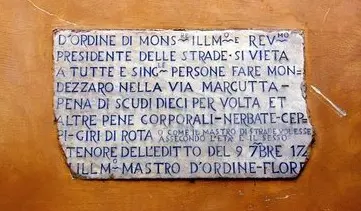 D'ORDINE DI MONS.RE ILLM.O E REV.MO
PRESIDENTE DELLE STRADE·SI VIETA
A TUTTE E SING.LE PERSONE FARE MON-
DEZZARO NELLA VIA MARGUTTA-
PENA DI SCUDI DIECI PER VOLTA ET
ALTRE PENE CORPORALI-NERBATE-CEP-
PI-GIRI DI ROTA O COME IL MASTRO DI STRADE VOLESSE
ASSECONDO L'ETÀ E IL SESSO
TENORE DELL'EDITTO DEL 9 7BRE 17
ILLM.O MASTRO D'ORDINE-FLOR